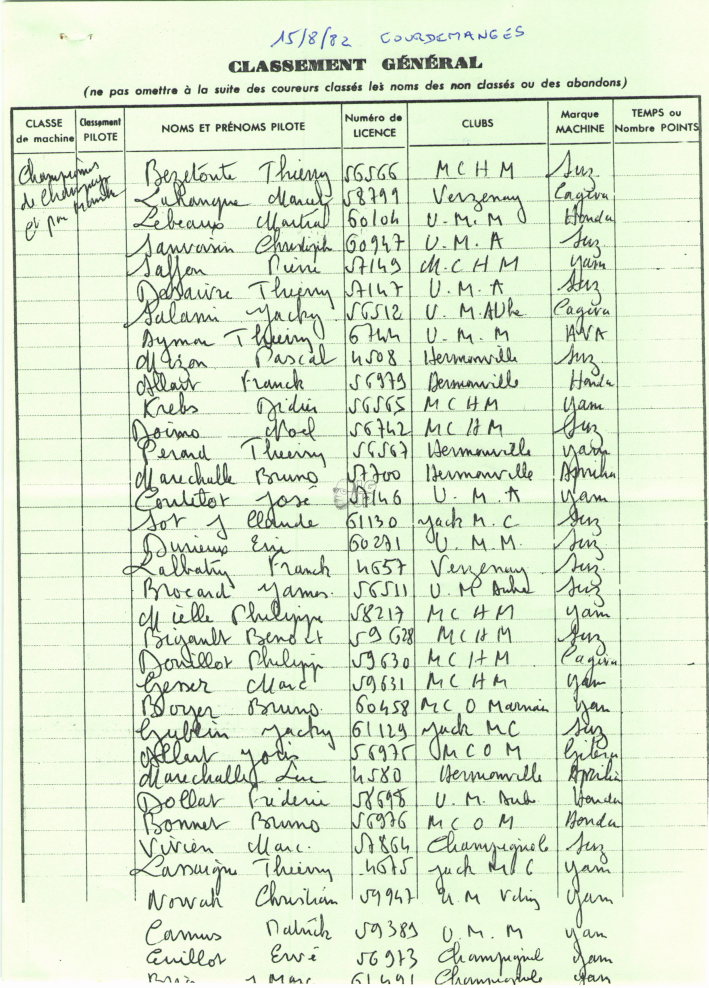 15/8/82 COURDEMANGES
CLASSEMENT GÉNÉRAL
(ne pas omettre à la suite des coureurs classés les noms des non classés ou des abandons)
CLASSE de machine Classement PILOTE NOMS ET PRÉNOMS PILOTE Numéro de LICENCE CLUBS Marque MACHINE TEMPS ou Nombre POINTS
Bezetoute Thierry 56566 M C H M Suz
de Marcel 58799 Verzenay Cagiva
et par Lebeaux Martial 60104 U. M. M Honda
Sauvoisin Christoph 60947 U. M. A Suz
Saffon Pierre 57149 M. C H M yam
Thierry 57147 U. M. A Suz
Salami Jacky 56512 U. M. AUbe Cagiva
Aymon Thierry 6744 U. M. M AVA
Mizon Pascal 4508 Hermonville Suz
Allart Franck 56979 Hermonville Honda
Krebs Didier 56565 M C H M yam
Doimo Noel 56742 M C H M Suz
Perard Thierry 56567 Hermonville yam
Marechalle Bruno 57700 Hermonville Aprilia
José 57146 U. M. A yam
Sot J Claude 61130 Jack M. C Suz
Durieux Eric 60271 U. M. M. Suz
Franck 4657 Verzenay Suz
Brocard James 56511 U. M Aube Suz
Mielle Philippe 58217 M C H M yam
Bigault Benoit 59628 M C H M Suz
Douillot Philipp 59630 M C H M Cagiva
Gesser Marc 59631 M C H M yam
Boyer Bruno 60458 M C O Marnais yam
Gublin Jacky 61129 Jack MC Suz
Allart 56975 M C O M Gilera
Marechalle Luc 4580 Hermonville Aprilia
Dollat Frederic 58698 U. M. Aube Honda
Bonnet Bruno 56976 M C O M Honda
Vivien Marc. 57864 Champignole Suz
Lassaigne Thierry 4675 Jack M C yam
Nowak Christian 59947 U M yam
Camus Patrick 59389 U. M. M yam
Guillot Ervé 56973 Champignol yam
J Marc 61491 Champignole yam